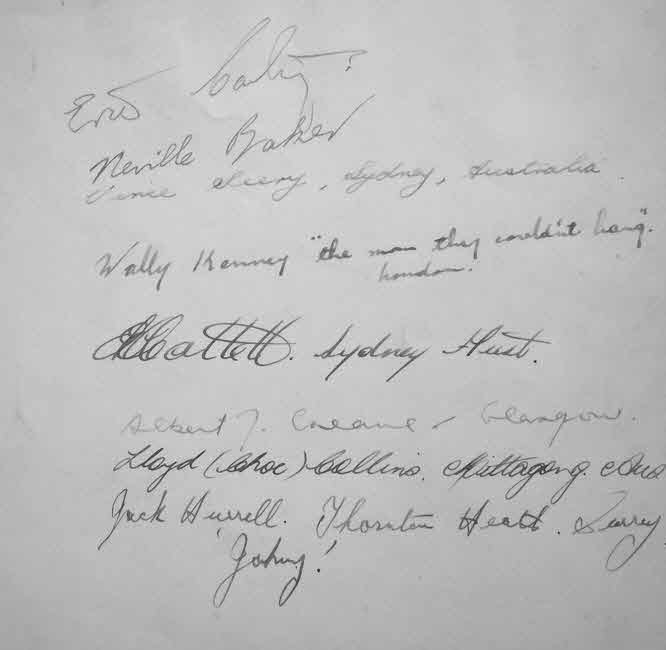 Eric
Neville Baker
Vince , Sydney, Australia
Wally Kenney "the man they couldn't hang".
London.
Sydney Aust.
Albert J. - Glasgow.
Lloyd (Choc) Collins. Mittagong. Aus
Jack Hurrell. Thornton Heath. Surrey
'Johny!'